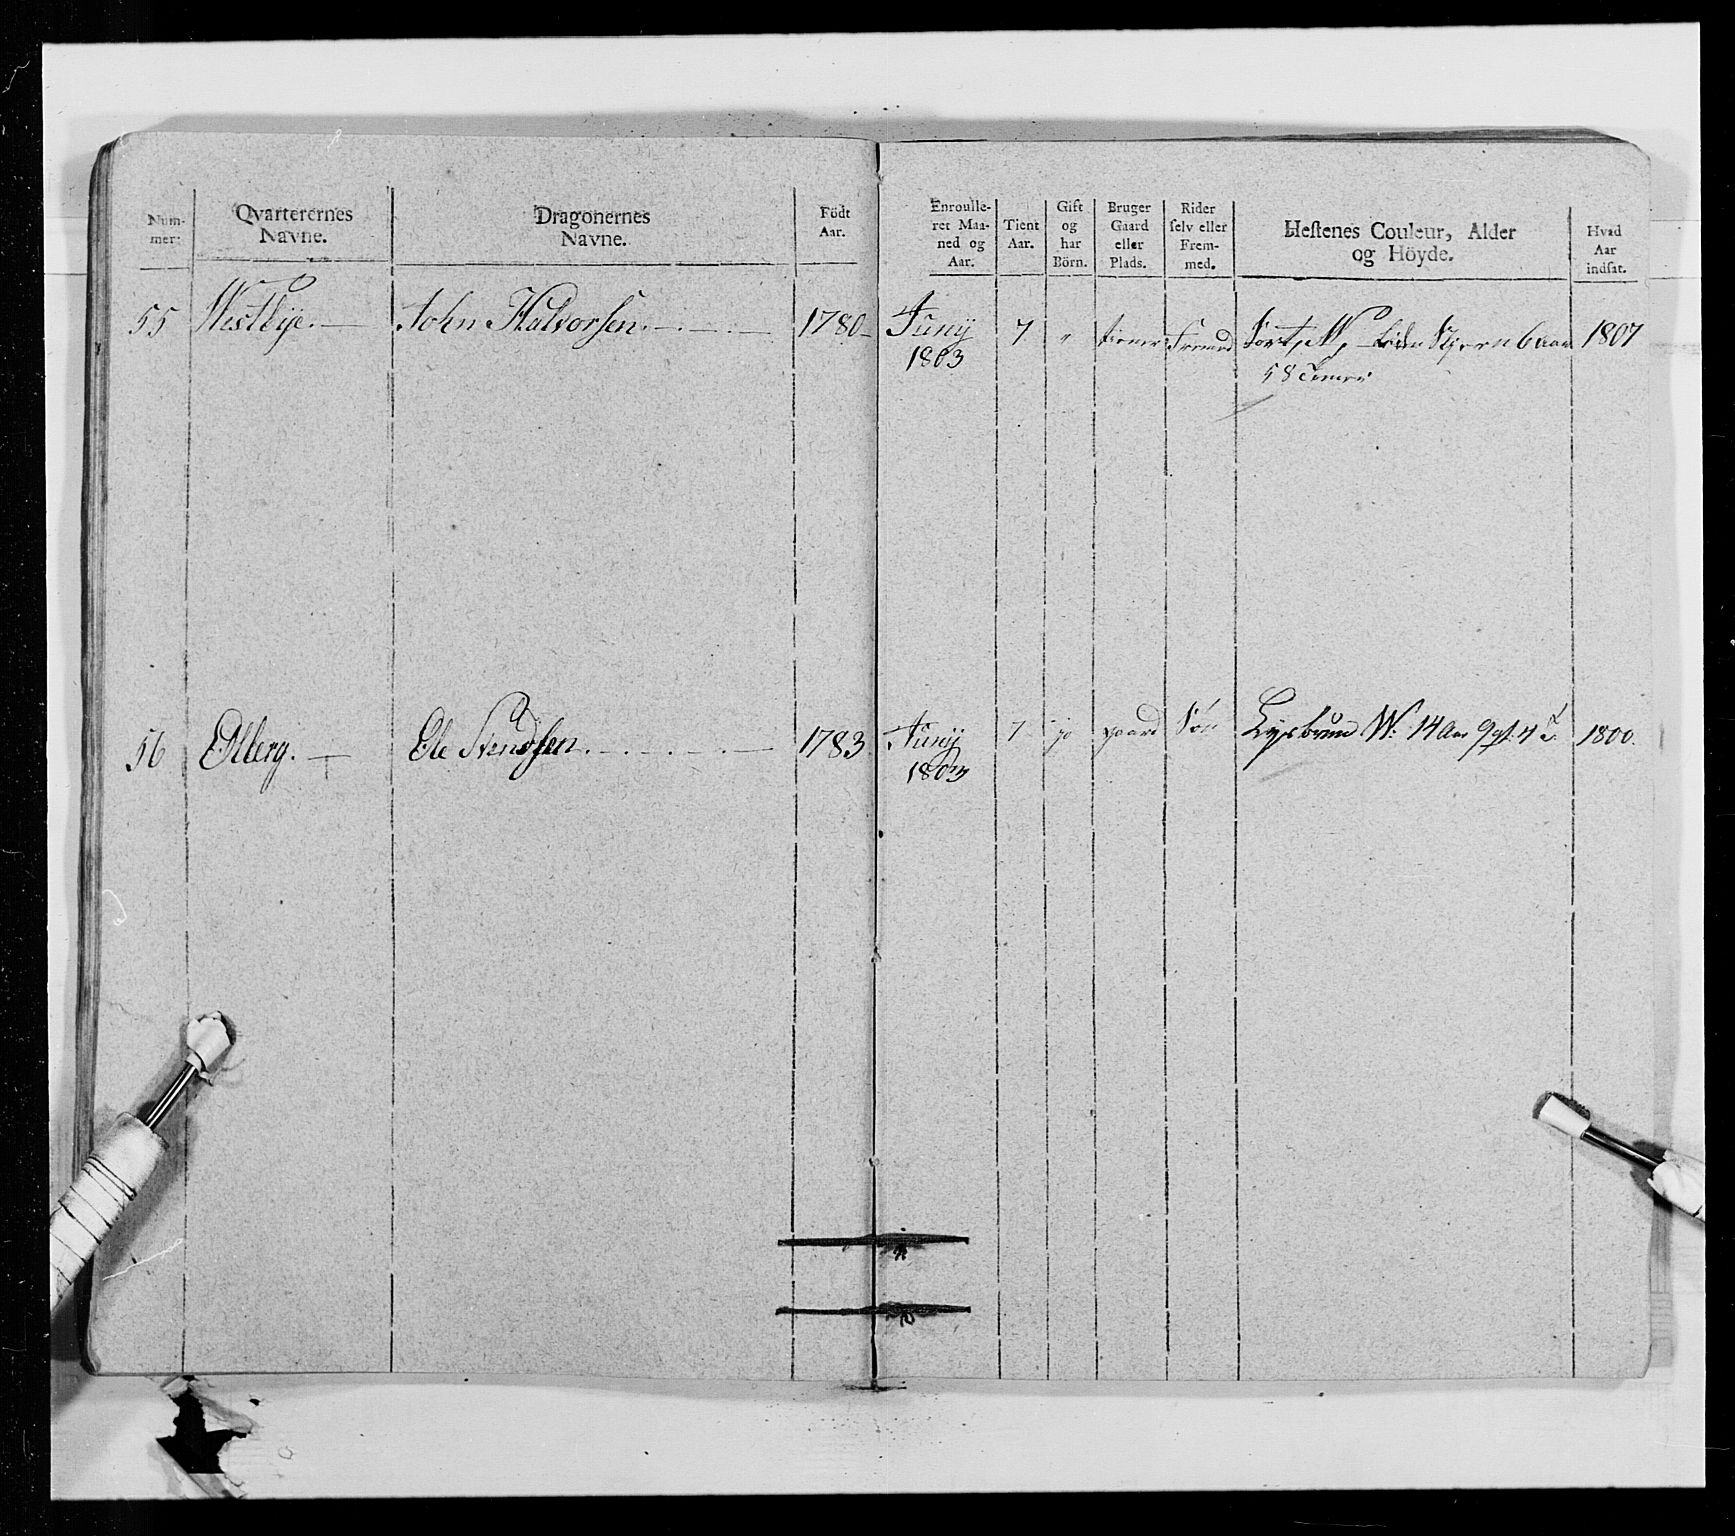 Num-
mer:
Qvarterernes
Navne.
Dragonernes
Navne.
Födt
Aar.
Enroulle-
ret Maa-
ned og
Aar.
Tient
Aar.
Gift
og
har
Börn.
Bruger
Gaard
eller
Plads.
Rider
selv eller
Frem-
med.
Hestenes Couleur, Alder
og Höyde.
Hvad
Aar
indsat.
55 Westbye. John Halvorsen. 1780 Junij 7 " tiener Fremed Sort, W, liden Stjern 6 aar 1807
1803 58 Tomer
56 Ole Svendsen. 1783 Junij 7 jo gaard Søn Lysbrun W: 14 Aar 9 qt: 4 T. 1800.
1803